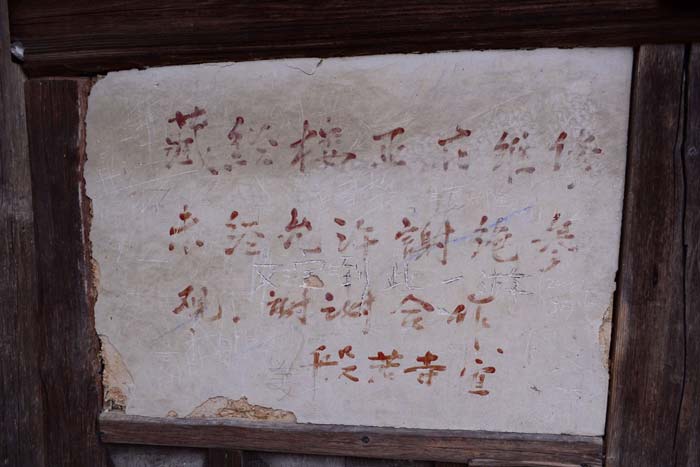 藏经楼正在维修
未经允许谢绝参
到此一游
观.谢谢合作
般若寺 宣